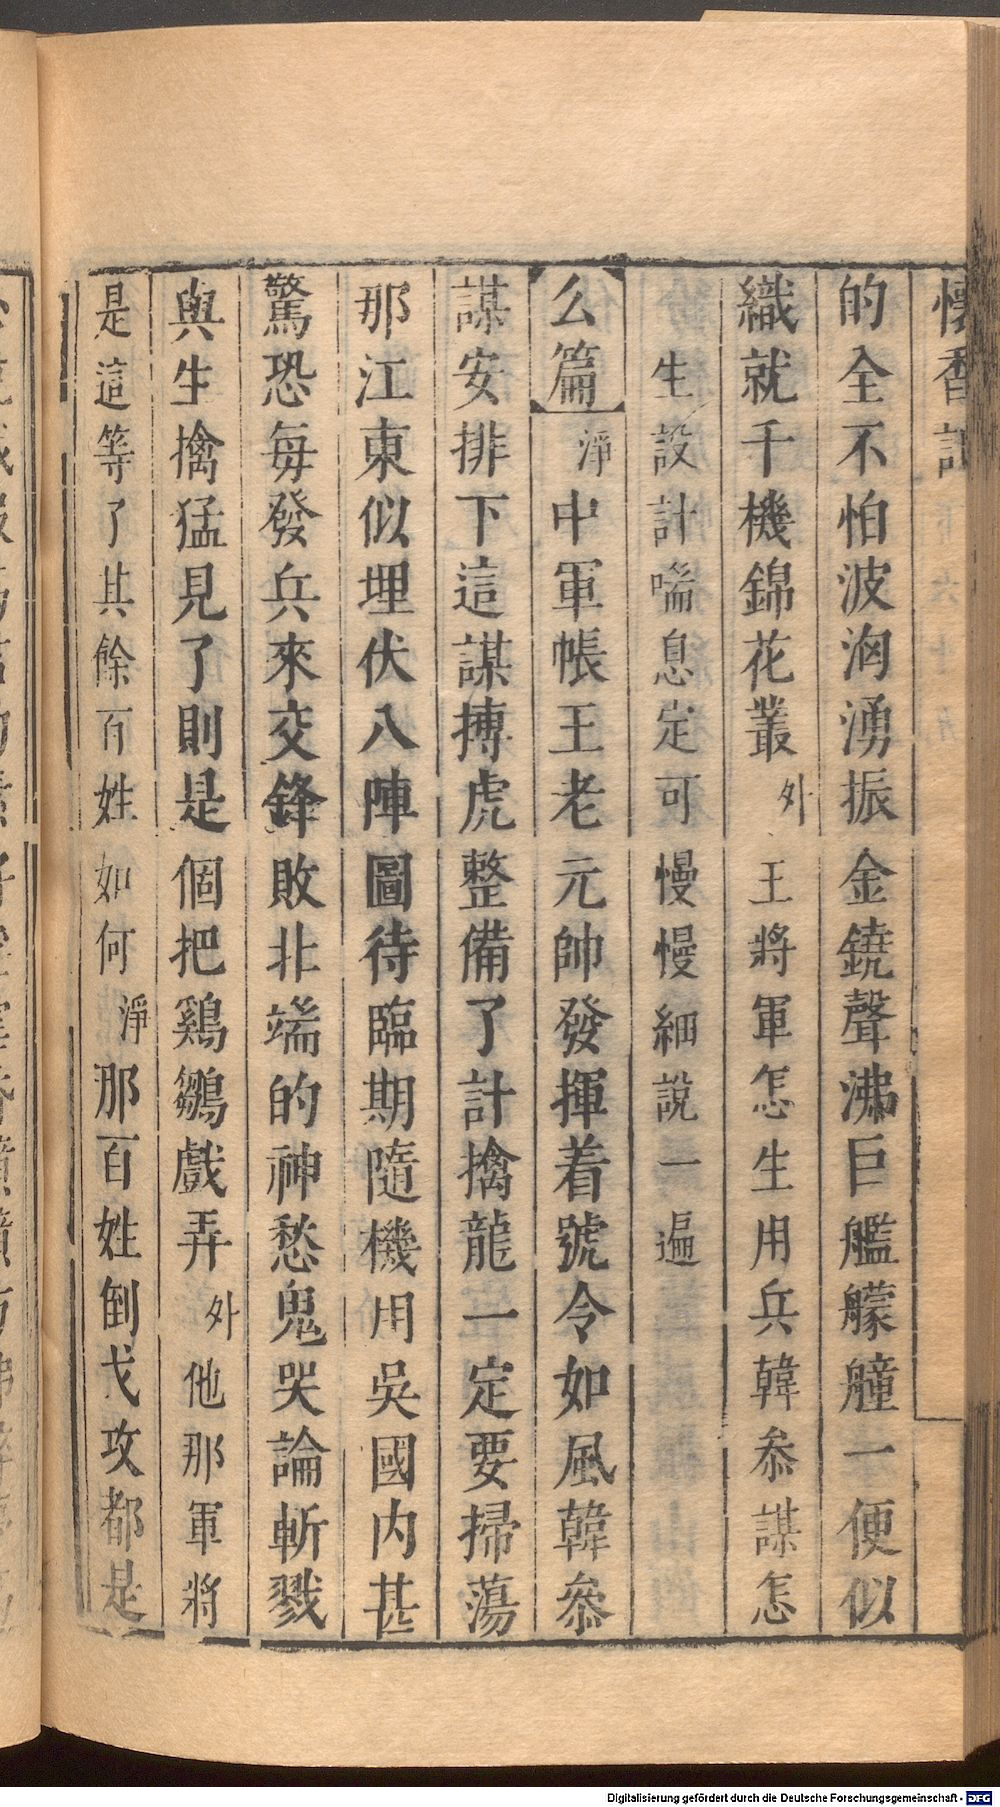 懷香記
的全不怕波洶湧振金鐃聲沸巨艦艨艟一便似
織就千機錦花叢外王將軍怎生用兵韓叅謀怎
生設計喘息定可慢慢細說一遍
么篇淨中軍帳王老元帥發揮着號令如風韓叅
謀安排下這謀搏虎整備了計擒龍一定要掃蕩
那江東似埋伏八陣圖待臨期隨機用吳國内甚
驚恐每發兵來交鋒敗北端的神愁鬼哭論斬戮
與生擒猛見了則是個把鷄鶵戲弄外他那軍將
是這等了其餘百姓如何淨那百姓倒戈攻都是
Digitalisierung gefördert durch die Deutsche Forschungsgemeinschaft - DFG